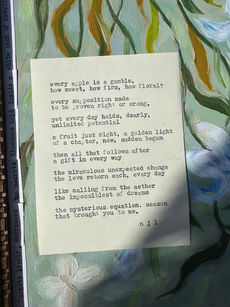 every apple is a gamble,
how sweet, how firm, how floral?
every supposition made
to be proven right or wrong,
yet every day holds, dearly,
unlimited potential
a fruit just right, a golden light
of a chapter, new, sudden begun
then all that follows after
a gift in every way
the miraculous unexpected change
the love reborn each, every day
like calling from the aether
the impossiblest of dreams
the mysterious equation, season
that brought you to me,
n j l